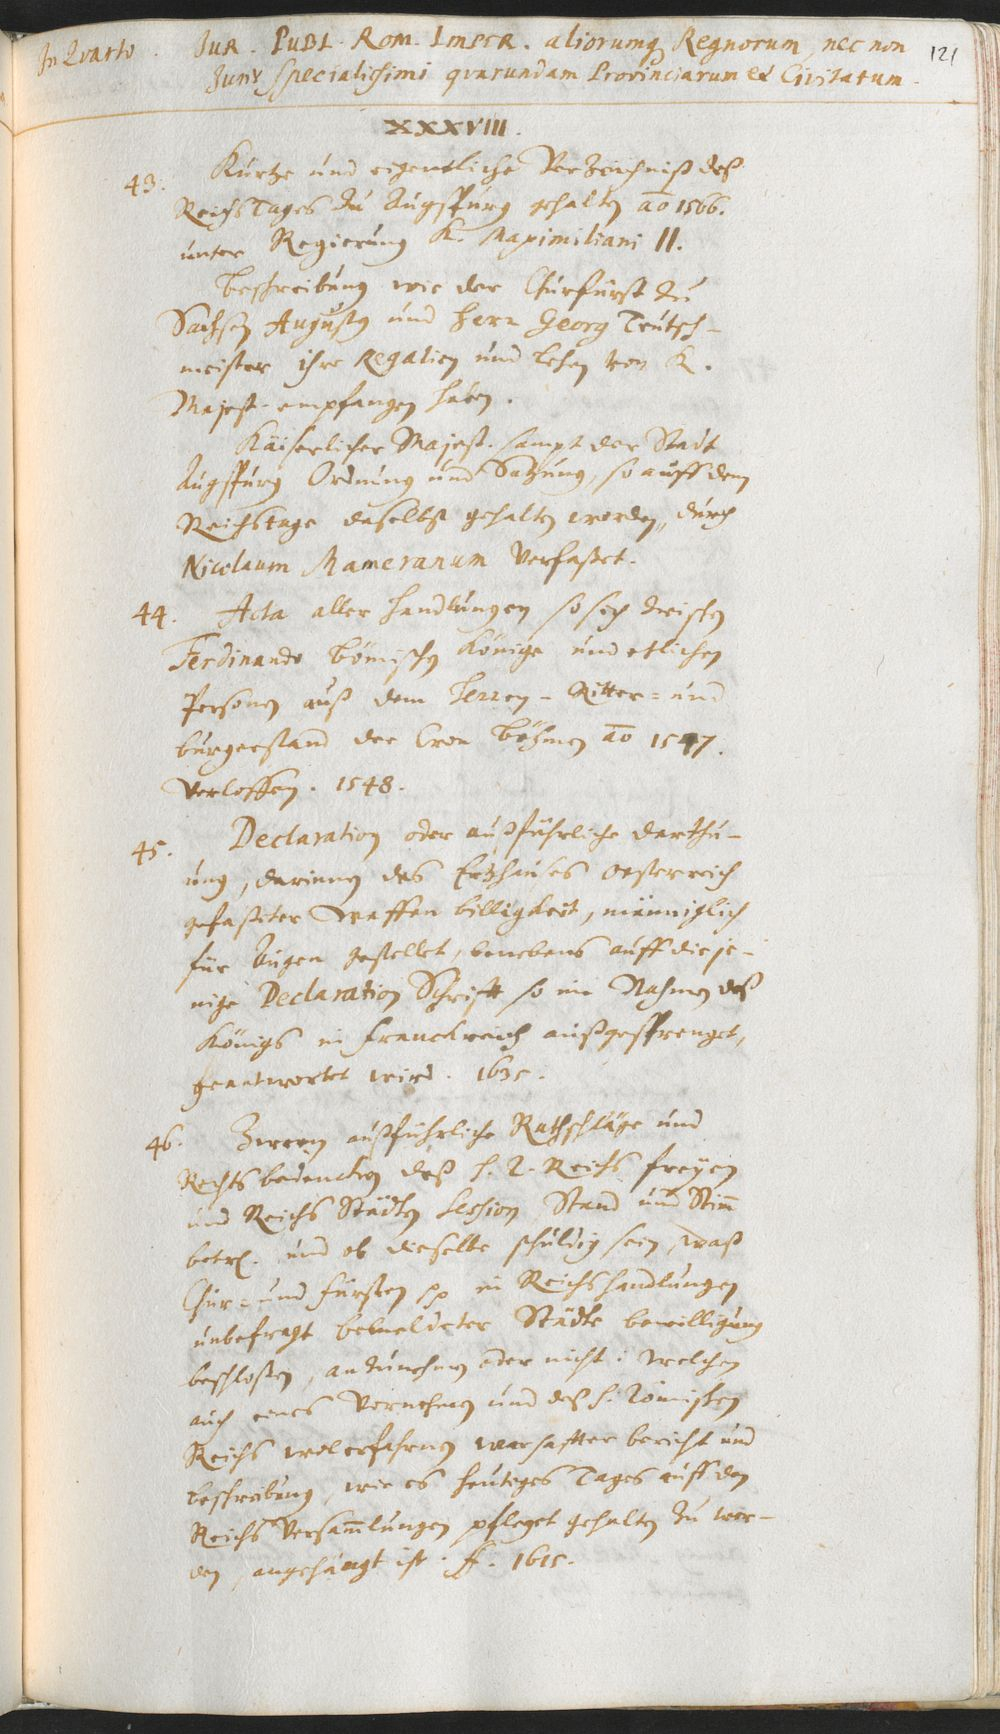 In Qvarto. JUR. PUBL. Rom. ImpeR. aliorumq Regnorum, nec non 121
Juris specialissimi qvarundam Provinciarum et Civitatum.
XXXVIII.
43. Kurtze und eigentliche Verzeichniß deß
Reichs Tages zu Augspurg gehalten ao 1566.
unter Regierung K. Maximiliani II.
Beschreibung wie der Churfürst zu
Sachsen Augustus und Herr Georg Teutsch-
meister ihre Regalien und Lehen von K.
Majest. empfangen haben.
Käiserlicher Majest. sampt der Stadt
Augspurg Ordnung und Satzung, so auff dem
Reichstage daselbst gehalten worden, durch
Nicolaum Mameranum verfasset.
44. Acta aller Handlungen so sich zwischen
Ferdinando Bömischen Könige und etlichen
Personen auß dem Herren- Ritter- und
burgerstand der Cron Böhmen ao 1547.
verloffen. 1548.
45. Declaration oder außführliche darthu-
ung, darinnen des Ertzhauses Oesterreich
gefaßter Waffen billigkeit, männiglich
für Augen gestellet, benebens auff dieje-
nige Declaration Schrift so im Nahmen deß
Königs in Franckreich außgesprenget,
geantwortet wird. 1635.
46. Zween außführliche Rathschläge und
Rechtsbedencken deß H. R. Reichs freyen
und Reichs Städten Session, Stand und Stimm
betr. und ob dieselbe schuldig sein, waß
Chur- und Fürsten pp in Reichshandlungen
unbefragt bemeldeter Städte bewilligung
beschlossen, anzunehmen oder nicht: welchen
auch eines Vornehmen und deß H. Römischen
Reichs wolerfahrnen warhaffter bericht und
beschreibung, wie es heutiges Tages auff den
Reichs Versamlungen pfleget gehalten zu wer-
den, angehängt ist. f. 1615.